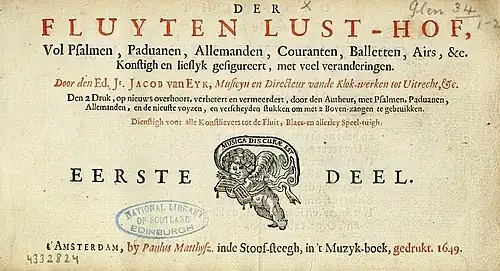 DER
FLUYTEN LUST-HOF,
Vol Psalmen, Paduanen, Allemanden, Couranten, Balletten, Airs, &c.
Konstigh en lieflyk gefigureert, met veel veranderingen.
Door den Ed. Jr. JACOB van EYK, Musicyn en Directeur vande Klok-werken tot Uitrecht, &c.
Den 2 Druk, op nieuws overhoort, verbetert en vermeerdert, door den Autheur, met Psalmen, Paduanen,
Allemanden, en de nieuste voyzen, en verscheyden stukken om met 2 Boven-zangen te gebruikken.
Dienstigh voor alle Konstlievers tot de Fluit, Blaes- en allerley Speel-tuigh.
MUSICA DIS CURÆ EST
EERSTE DEEL.
NATIONAL LIBRARY
OF SCOTLAND
EDINBURGH
t'AMSTERDAM, by Paulus Matthysz. inde Stoof-steegh, in 't Muzyk-boek, gedrukt. 1649.
Glen 34
1-2
4332824